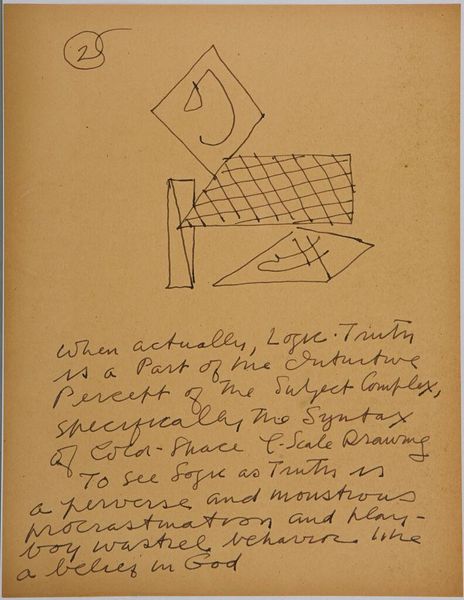 2
When actually, Logic-Truth
is a Part of the Intuitive
Percept of the Subject Complex,
specifically, the Syntax
of Color-Space &-Scale Drawing
To see Logic as Truth is
a perverse and monstrous
procrastination and play-
boy wastrel behavior like
a belief in God